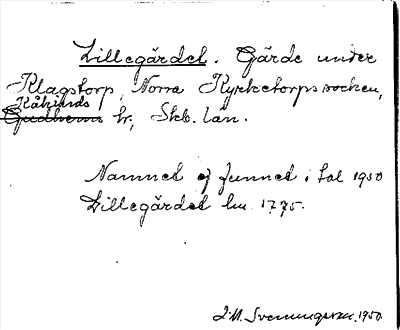 Lillegärdet. Gärde under
Klagstorp, Norra Kyrketorps socken,
Kåkinds
Gudhems hr, Skb. län.
Namnet ej funnet i Sal 1950
Lillegärdet lm 1775.
J.M. Svenungsson. 1950